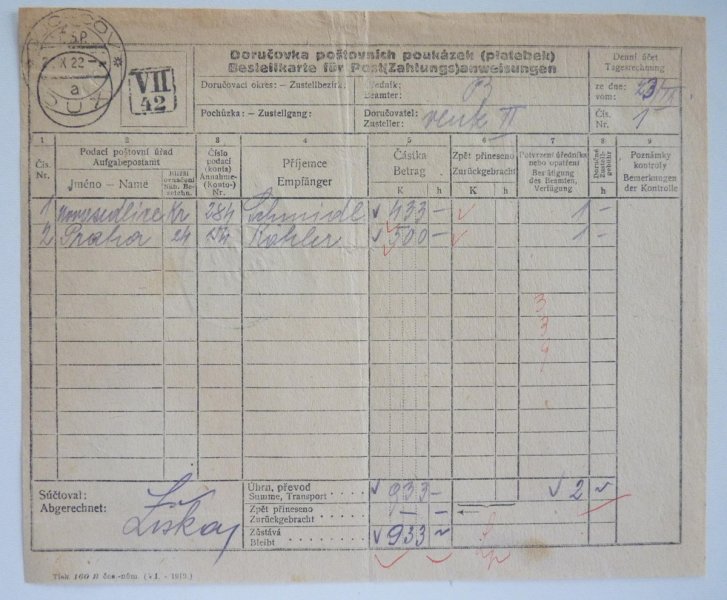 22
a
VII
42
Doručovka poštovních poukázek (platebek)
Bestellkarte für Post(Zahlungs)anweisungen
Doručovací okres: – Zustellbezirk:
Úředník:
Beamter:
B
Pochůzka: – Zustellgang:
Doručovatel:
Zusteller:
venk II
Denní účet
Tagesrechnung
ze dne:
vom:
23/IX
Čís.
Nr.
1
1 2 3 4 5 6 7 8 9
Čís.
Nr.
Podací poštovní úřad
Aufgabepostamt
Jméno – Name
Bližší
označení
Näh. Be-
zeichn.
Číslo
podací
(konta)
Annahme-
(Konto-)
Nr.
Příjemce
Empfänger
Částka
Betrag
K h
Zpět přineseno
Zurückgebracht
K h
Potvrzení úředníka
nebo opatření
Bestätigung
des Beamten,
Verfügung
Doručné
Zustell-
gebühr
K h
Poznámky
kontroly
Bemerkungen
der Kontrolle
1 Kr 284 Schmidl 433 – 1 –
2 Praha 24 Köhler 500 – 1 –
3
3
Súčtoval:
Abgerechnet:
Liška
Úhrn, převod
Summe, Transport
933 –
2
Zpět přineseno
Zurückgebracht
Zůstává
Bleibt
933
Tisk 160 B čes.-něm.